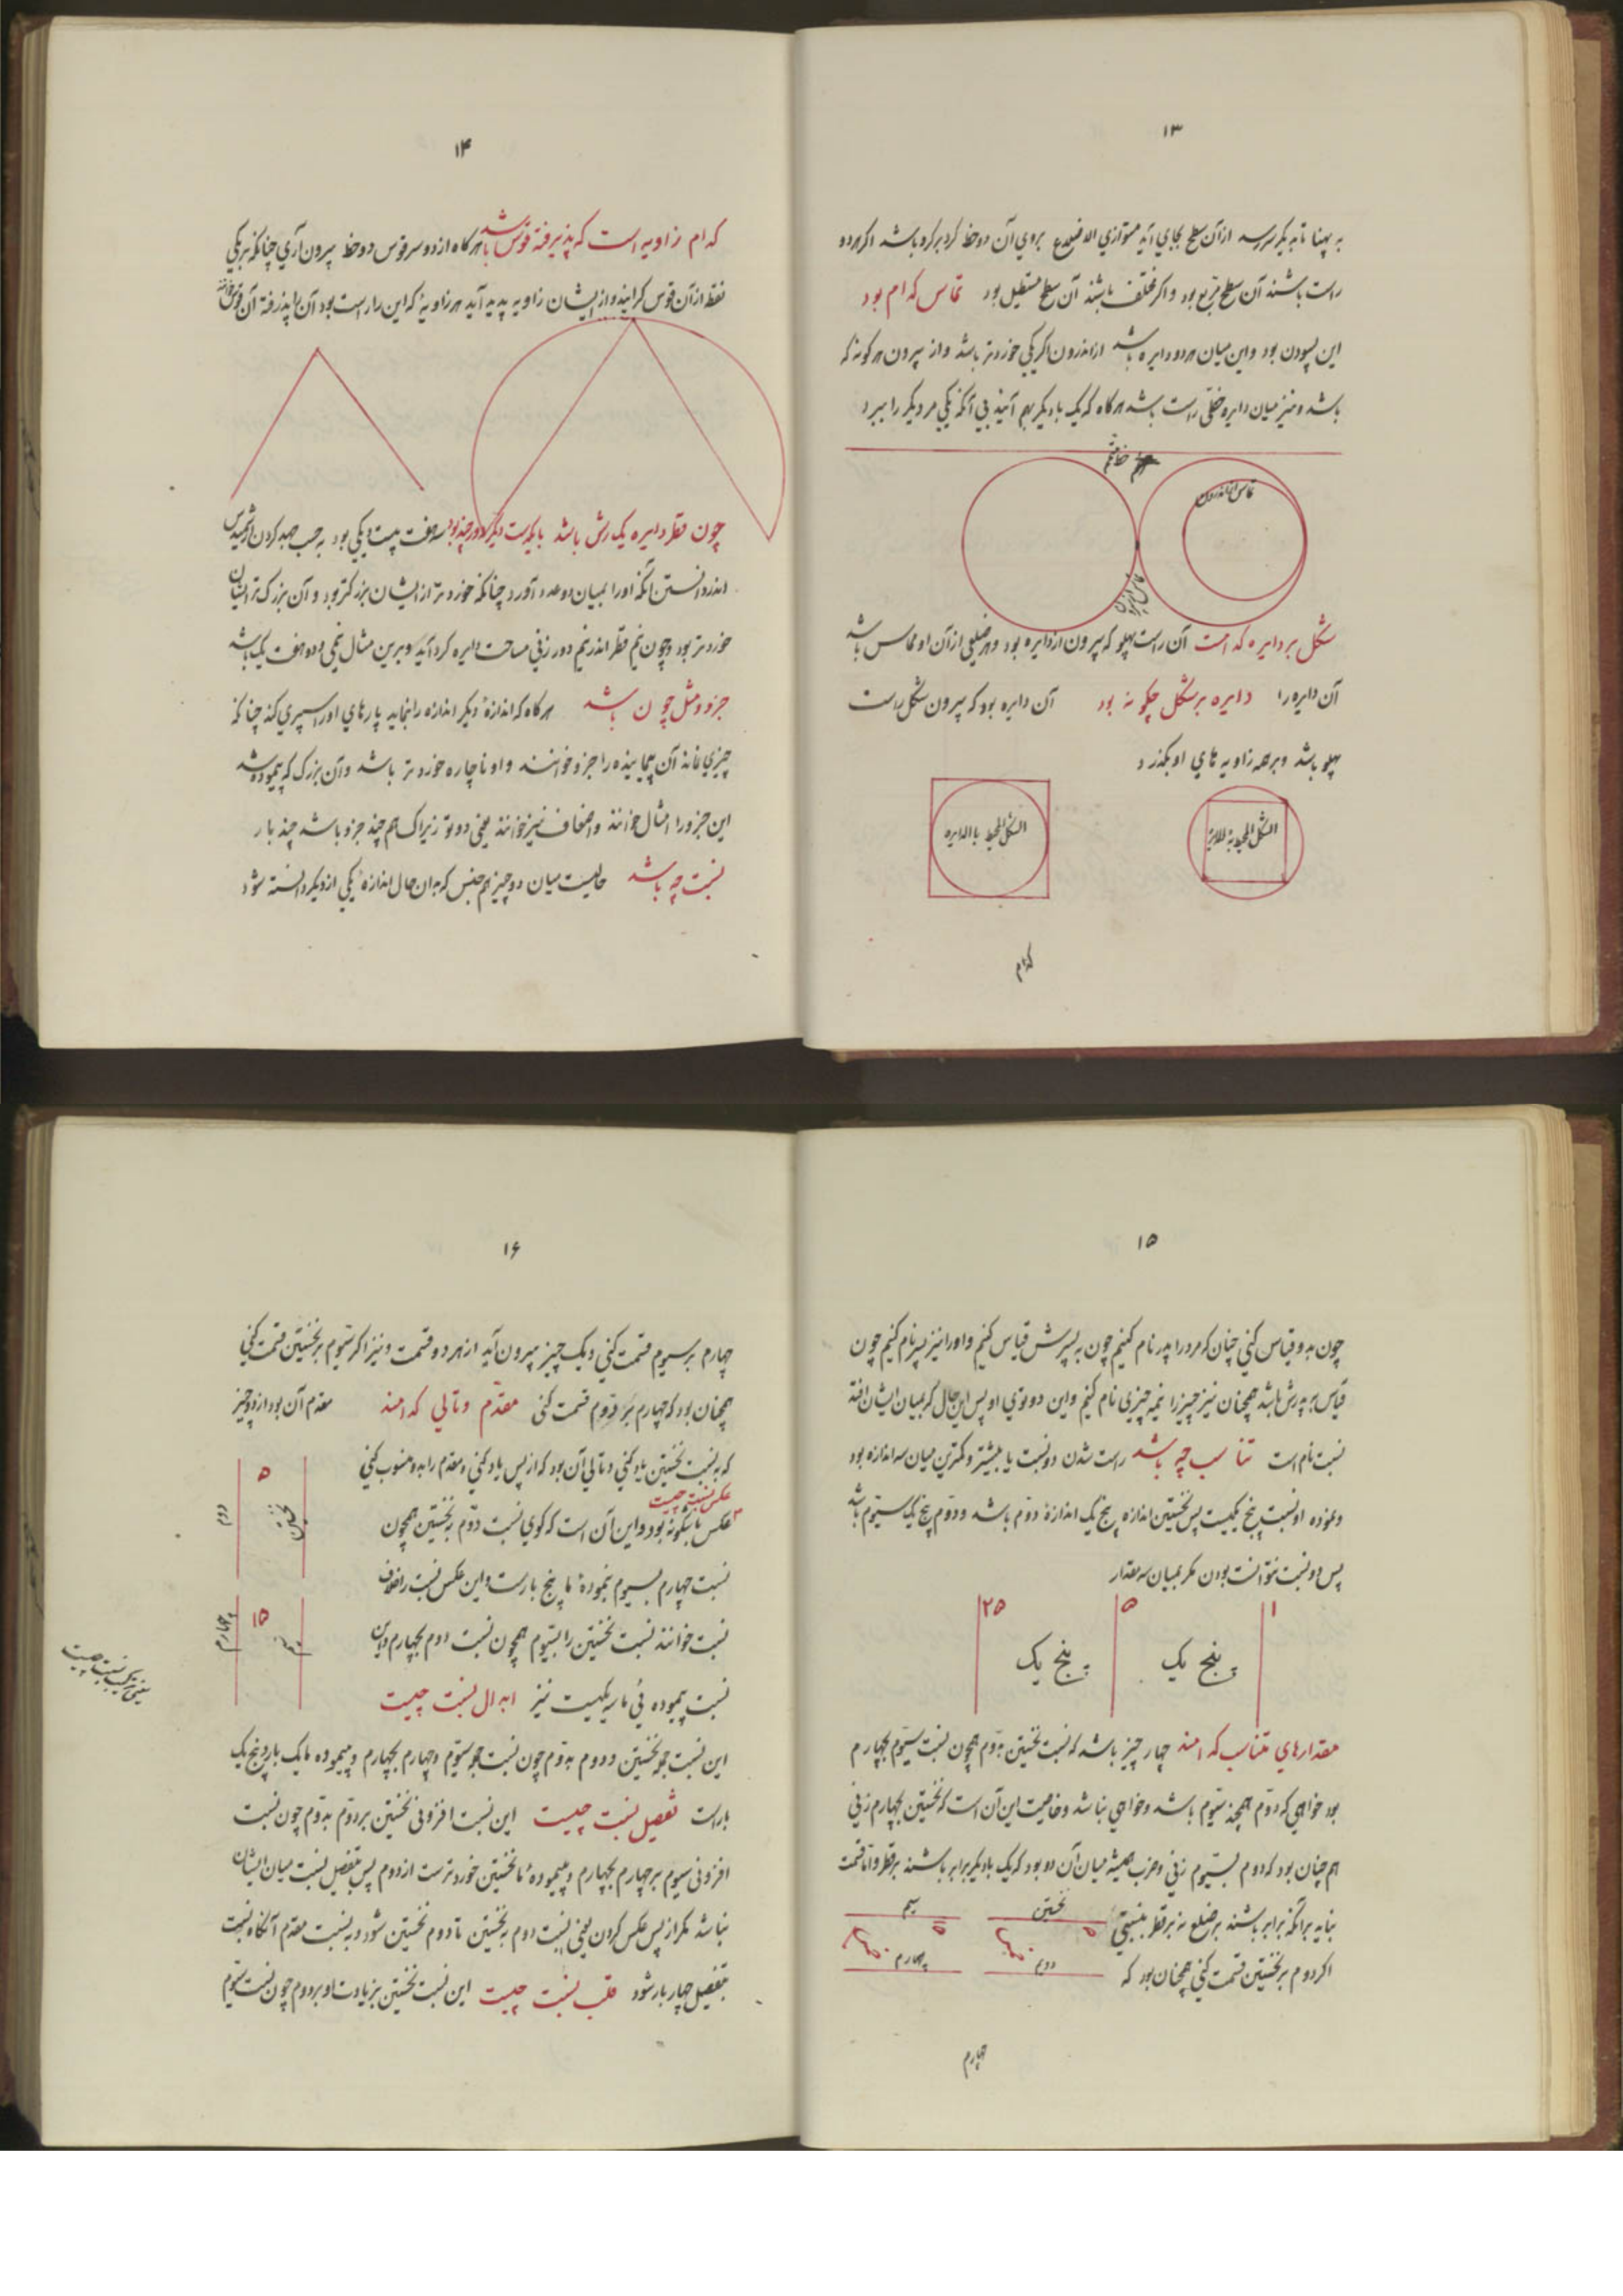 ۱۳
به پهنا تا به یکر سرسد ازآن سطح بجای آید متوازی الاضلاع بروی آن دو خط کرد برکرد باشد اکر هر دو
راست باشند آن سطح مربع بود و اکر مختلف باشند آن سطح مستطیل بود تماس کدام بود
این بسودن بود واین میان هردو دایره باشد ازاندرون اکر یکی خوردتر باشد واز بیرون هر کونه که
باشد ونیز میان دایره خطی راست باشد هرکاه که یک بادیکر بهم آیند بی آنکه یکی مر دیکر را ببرد
تماس ازاندرون
تماس از بیرون
شکل بر دایره کدامست آن راست پهلو که بیرون ازدایره بود وهر ضلعی ازآن او مماس باشد
آن دایره را دایره برشکل چکونه بود آن دایره بود که بیرون شکل راست
پهلو باشد وبرهمه زاویه های او بکذرد
الشکل المحیط بالدایره
الشکل المحیط به الدایرة
کدام
۱۴
کدام زاویه است که پذیرفتهٔ قوس باشد هرکاه ازدو سر قوس دو خط بیرون آری چنانکه بریکی
نقطه ازآن قوس کرایند وازیشان زاویه پدید آید هرزاویهٔ که این را راست بود آن را پذیرفته آن قوس خوانند
چون قطر دایره یک رش باشد بایکرست دیکر دور چند بود سه هفت بیست ویکی بود به حسب جهد کردن ارشمیدس
اندر دانستن آنکه اورا بمیان دو عدد آورد چنانکه خوردتر ازایشان بزرکتر بود و آن بزرک تر ازایشان
خوردتر بود وچون نیم قطر اندر نیم دور زنی مساحت دایره کرد آید وبرین مثال نیمی وده هفت یک باشد
جزو ومثل چون باشد هرکاه که اندازهٔ دیکر اندازه را بنماید پارهای اورا سپری کند چنانکه
چیزی نماند آن پیماینده را جزو خوانند و او ناچاره خوردتر باشد و آن بزرک که پیموده شد
این جزو را امثال خوانند واضعاف نیز خوانند یعنی دو تو زیراک هم چند جزو باشد چند بار
نسبت چه باشد حالیست میان دو چیز هم جنس که بدان حال اندازهٔ یکی ازدیکر دانسته شود
۱۵
چون بدو قیاس کنی چنان که مرد را پدر نام کنیم چون به پسرش قیاس کنیم واورا نیز پسر نام کنیم چون
قیاس به پدرش باشد همچنان نیز چیز را نیمه چیزی نام کنیم واین دوتوی او پس این حال که بمیان ایشان افتد
نسبت نام است تناسب چه باشد راست شدن دو نسبت یا بیشتر وکمترین میان سه اندازه بود
ونموده او نسبت پنج یکیست پس نخستین اندازه پنج یک اندازهٔ دوم باشد و دوم پنج یک سیوم باشد
پس دو نسبت نتوانست بودن مکر بمیان سه مقدار
۱
۵
۲۵
پنج یک
پنج یک
مقدارهای متناسب کدامند چهار چیز باشد که نسبت نخستین بدوم همچون نسبت سیوم بچهارم
بود خواهی که دوم همچند سیوم باشد وخواهی نباشد وخاصیت این آن است که نخستین بچهارم زنی
هم چنان بود که دوم بسیوم زنی وضرب همیشه میان آن دو بود که یک بادیکر برابر باشند برقطر واما قسمت
نیاید برانکه برابر باشند برضلع نه برقطر
اکر دوم برنخستین قسمت کنی همچنان بود که
نخستین
۵
دویم
سیم
چهارم
چهارم
۱۶
چهارم برسیوم قسمت کنی ویک چیز بیرون آید ازهر دو قسمت ونیز اکر سیوم برنخستین قسمت کنی
همچنان بود که چهارم بر دوم قسمت کنی مقدم وتالی کدامند مقدم آن بود ازدو چیز
که به نسبت نخستین یاد کنی وتالی آن بود که ازپس یاد کنی ومقدم را بدو منسوب کنی
عکس نسبت چیست
عکس باشکونه بود واین آن است که کوی نسبت دوم به نخستین همچون
نسبت چهارم بسیوم نمودهٔ ما پنج بارست واین عکس نسبت را خلاف
نسبت خوانند نسبت نخستین را بسیوم همچون نسبت دوم بچهارم واین
نسبت پیموده نی ما سه یکیست نیز ابدال نسبت چیست
نخستین
دوم
۵
۱۵
چهارم
این نسبت جمله نخستین و دوم بدوم چون نسبت جمله سیوم وچهارم بچهارم وپیموده ما یک بار وپنج یک
باراست تفصیل نسبت چیست این نسبت افزونی نخستین بر دوم بدوم چون نسبت
افزونی سیوم برچهارم بچهارم وپیمودهٔ ما نخستین خوردترست ازدوم پس بتفصیل نسبت میان ایشان
نباشد مکر ازپس عکس کردن یعنی نسبت دوم به نخستین تا دوم نخستین شود وبه نسبت مقدم آنکاه نسبت
بتفصیل چهار بار شود قلب نسبت چیست این نسبت نخستین بزیادت او بر دوم چون نسبت سیوم